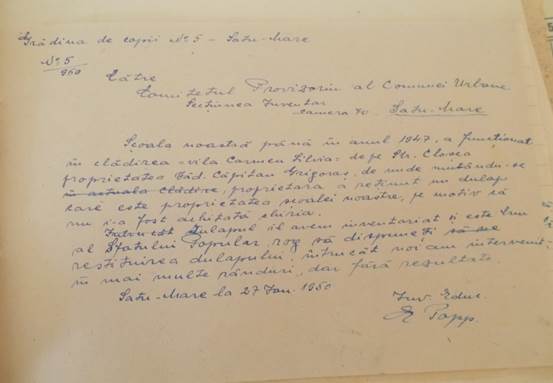 Grădina de copii No 5 - Satu-Mare
No 5
950
Către
Comitetul Provizoriu al Comunei Urbane
Secțiunea Inventar
camera 40. Satu-Mare
Școala noastră până în anul 1947, a funcționat
în clădirea "vila Carmen Silvia" de pe Str. Cloșca
proprietatea Căpitan Grigoraș, de unde mutându-se
în actuala clădire, proprietara a reținut un dulap
care este proprietatea școalei noastre, pe motiv că
nu i-a fost achitată chiria.
Întrucât dulapul îl avem inventariat și este bun
al Sfatului Popular, rog să dispuneți să se
restituirea dulapului, întrucât noi am intervenit
în mai multe rânduri, dar fără rezultate.
Satu-Mare la 27 Ian. 1950
Înv. Educ.
Papp.